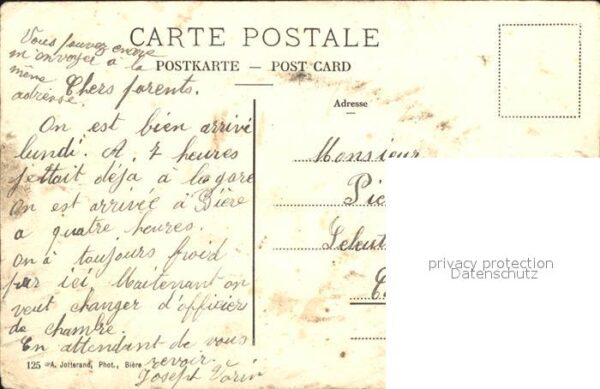 Vous pouvez encore
m'envoyer à la
même
adresse.
CARTE POSTALE
POSTKARTE — POST CARD
Chers parents.
On est bien arrivé
lundi. A 7 heures
j'ettait déja à la gare
On est arrivée à Bière
a quatre heures.
On à toujours froid
par ici. Maintenant on
veut changer d'officier
de chambre.
En attendant de vous
revoir.
Joseph
125 - A. Jotterand, Phot., Bière
Adresse
Monsieur
privacy protection
Datenschutz